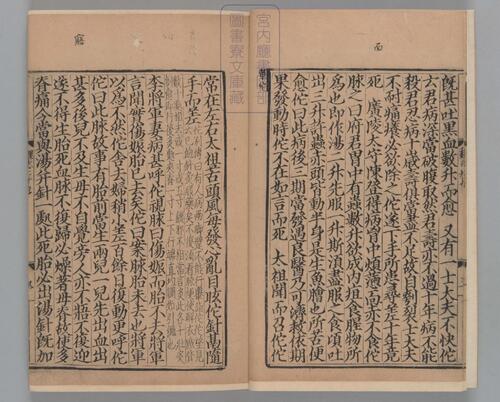 既甚吐黑血數升而愈 又有一士大夫不快佗
云君病深當破腹取然君壽亦不過十年病不能
殺君忍病十歲壽俱當盡不足故自刳裂士大夫
不耐痛癢必欲除之佗遂下手所患尋差十年竟
死 廣陵太守陳登得病胷中煩懣面赤不食佗
脉之曰府君胃中有蟲數升欲成内疽食腥物所
為也即作湯二升先服一升斯湏盡服之食頃吐
出三升許蟲赤頭皆動半身是生魚膾也所苦便
愈佗曰此病後三期當發遇良醫乃可濟救依期
果發動時佗不在如言而死 太祖聞而召佗佗
宮内廳書陵部
圖書寮文庫藏
常在左右太祖苦頭風每發心亂目眩佗針鬲隨
手而差
李將軍妻病甚呼佗視脉曰傷娠而胎不去將軍
言聞實傷娠胎已去矣佗曰案脉胎未去也將軍
以為不然佗舍去婦稍小差百餘日復動更呼佗
佗曰此脉故事有胎前當生兩兒一兒先出血出
甚多後兒不及生母不自覺旁人亦不悟不復迎
遂不得生胎死血脉不復歸必燥著母脊故使多
脊痛今當與湯并針一處此死胎必出湯針既加